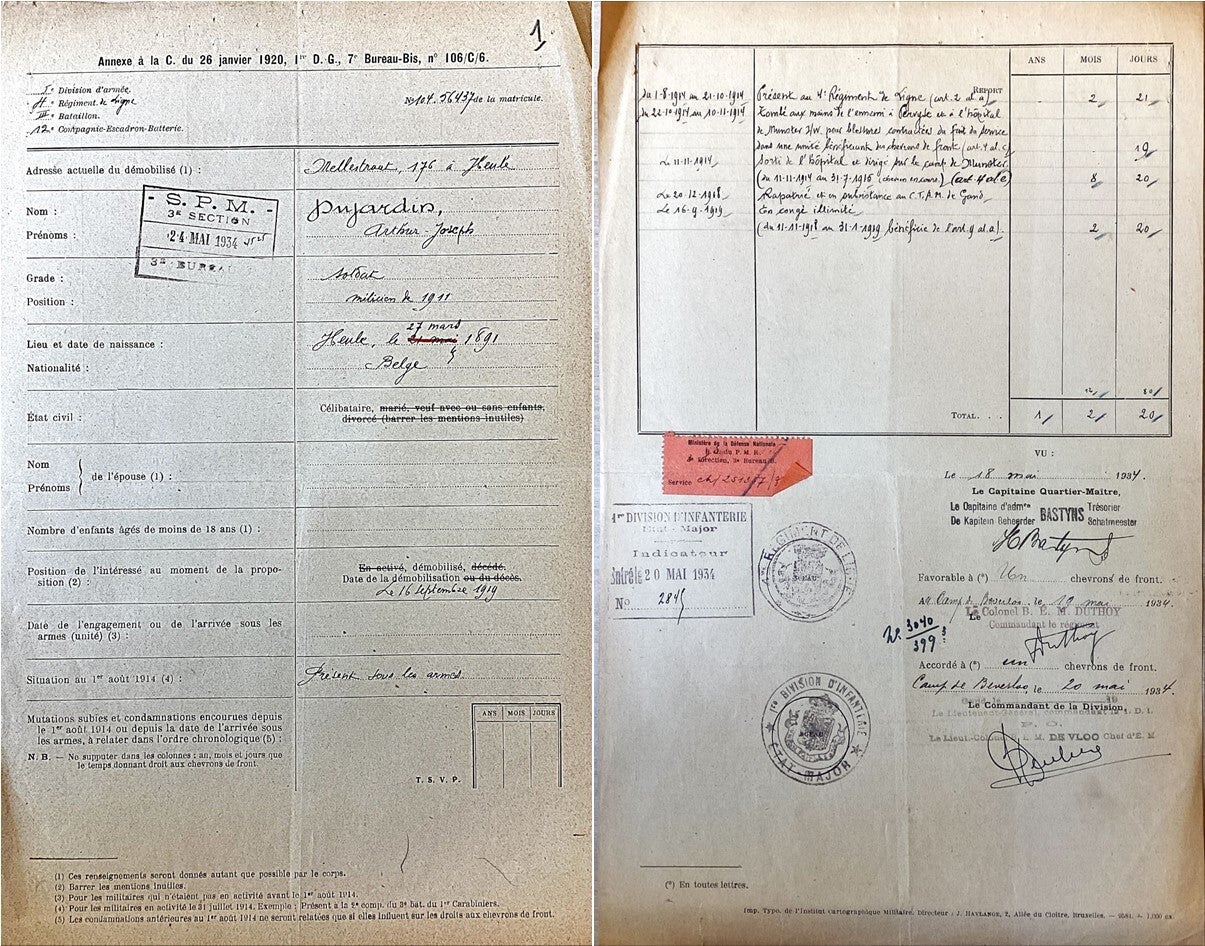 1
Annexe à la C. du 26 janvier 1920, 1re D. G., 7e Bureau-Bis, n° 106/C/6.
Division d'armée.
4e Régiment de Ligne
IIIe Bataillon.
12e Compagnie-Escadron-Batterie.
N° 104.56437 de la matricule.
Adresse actuelle du démobilisé (1) :
Mellestraat, 176 à Heule
S. P. M.
3e SECTION
24 MAI 1934
3e BUREAU
Nom :
Dujardin,
Prénoms :
Arthur-Joseph
Grade :
soldat
Position :
milicien de 1911
27 mars
Lieu et date de naissance :
Heule, le 21 mai 1891
Nationalité :
Belge
État civil :
Célibataire, marié, veuf avec ou sans enfants,
divorcé (barrer les mentions inutiles)
Nom
Prénoms
de l'épouse (1) :
Nombre d'enfants âgés de moins de 18 ans (1) :
Position de l'intéressé au moment de la propo-
sition (2) :
En activé, démobilisé, décédé.
Date de la démobilisation ou du décès.
Le 16 septembre 1919
Date de l'engagement ou de l'arrivée sous les
armes (unité) (3) :
Situation au 1er août 1914 (4) :
Présent sous les armes.
Mutations subies et condamnations encourues depuis
le 1er août 1914 ou depuis la date de l'arrivée sous
les armes, à relater dans l'ordre chronologique (5) :
N. B. — No supputer dans les colonnes : an, mois et jours que
le temps donnant droit aux chevrons de front.
ANS MOIS JOURS
T. S. V. P.
(1) Ces renseignements seront donnés autant que possible par le corps.
(2) Barrer les mentions inutiles.
(3) Pour les militaires qui n'étaient pas en activité avant le 1er août 1914.
(4) Pour les militaires en activité le 31 juillet 1914. Exemple : Présent à la 2e comp. du 3e bat. du 1er Carabiniers.
(5) Les condamnations antérieures au 1er août 1914 ne seront relatées que si elles influent sur les droits aux chevrons de front.
ANS MOIS JOURS
REPORT
du 1-8-1914 au 21-10-1914 Présent au 4e Régiment de Ligne (art. 2 al. a) 2 21
du 22-10-1914 au 10-11-1914 Tombé aux mains de l'ennemi à Pervyse et à l'hôpital
de Munster I/W. pour blessures contractées du fait du service
dans une unité bénéficiant des chevrons de front (art. 4 al. c) 19
Le 11-11-1914 Sorti de l'hôpital et dirigé sur le camp de Munster.
(du 11-11-1914 au 31-7-1915 (art. 4 al. e) 8 20
Le 20-12-1918 Rapatrié et en subsistance au C.T.A.M. de Gand.
Le 16-9-1919 En congé illimité.
(du 11-11-1918 au 31-1-1919 bénéficie de l'art. 9 al. a). 2 20
12 80
TOTAL. . . . 1 2 20
Ministère de la Défense Nationale
P. M. R.
Direction, 3e Bureau
Service
VU :
Le 18 mai 1934.
Le Capitaine Quartier-Maître,
Le Capitaine d'admon BASTYNS Trésorier
De Kapitein Beheerder Schatmeester
1re DIVISION D'INFANTERIE
Etat-Major
Indicateur
Entré le 20 MAI 1934
N° 2845
REGIMENT DE LIGNE
Favorable à (*) Un chevrons de front.
Au Camp de Beverloo, le 19 mai 1934.
Le Colonel B. E. M. DUTHOY
Le
Commandant le régiment
Duthoy
N° 3040
399
Accordé à (*) un chevrons de front.
Camp de Beverloo, le 20 mai 1934.
Le Commandant de la Division,
1re DIVISION D'INFANTERIE
ETAT-MAJOR
Le Lieut-Colonel B. E. M. DE VLOO Chef d'E. M
(*) En toutes lettres.
Imp. Typo. de l'Institut cartographique Militaire. Directeur : J. HAYLANGE, 2, Allée du Cloître, Bruxelles. — 9581. — 1.000 ex.